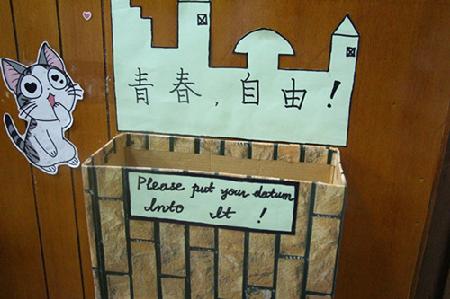 青春，自由！
Please put your datum
Into It !